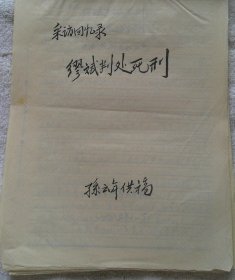 采访回忆录
缪斌判处死刑
孫云年供稿